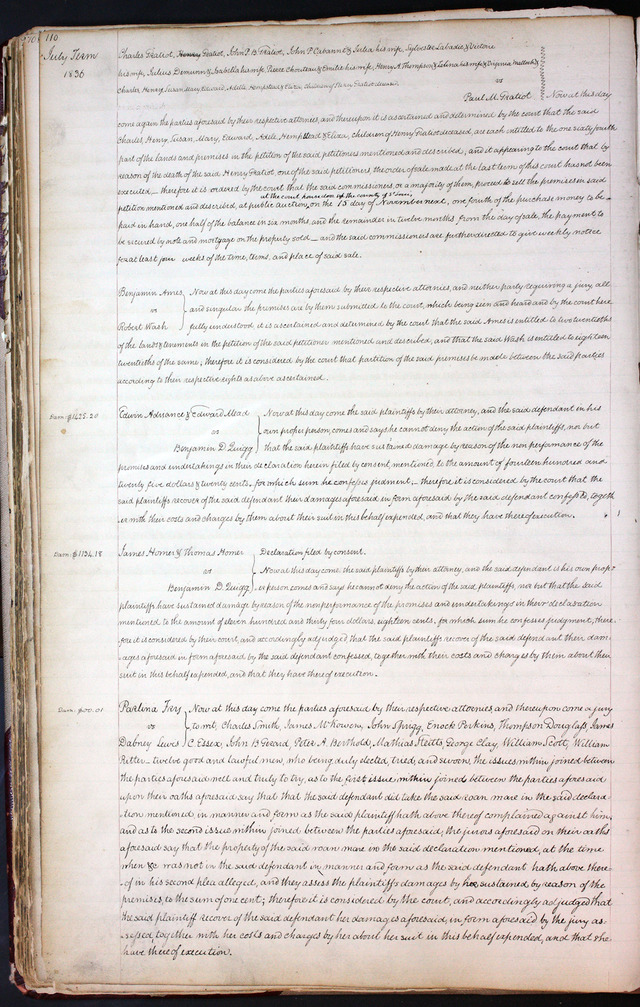 110
July Term
1836
Charles Gratiot, Henry Gratiot, John P. B. Gratiot, John P. Cabanne & Julia his wife, Sylvestre Labadie & Victoire
his wife, Julius Demunn & Isabella his wife, Pierre Chouteau & Emilie his wife, Henry A. Thompson & his wife &
Charles, Henry, Susan, Mary, Edward, Adele, Hempstead & Eliza, children of Henry Gratiot deceased,
vs
Paul M. Gratiot Now at this day
come again the parties aforesaid by their respective attornies, and thereupon it is ascertained and determined by the court that the said
Charles, Henry, Susan, Mary, Edward, Adele, Hempstead & Eliza, children of Henry Gratiot deceased, are each entitled to the one sixty fourth
part of the lands and premises in the petition of the said petitioners mentioned and described, and it appearing to the court that by
reason of the death of the said Henry Gratiot, one of the said petitioners, the order of sale made at the last term of this court has not been
executed — therefore it is ordered by the court that the said commissioners or a majority of them, proceed to sell the premises in said
at the court house door of the county of St. Louis
petition mentioned and described, at public auction, on the 15 day of November next, one fourth of the purchase money to be
paid in hand, one half of the balance in six months and the remainder in twelve months from the day of sale, the payment to
be secured by note and mortgage on the property sold — and the said commissioners are further directed to give weekly notice
for at least four weeks of the time, terms, and place of said sale.
Benjamin Ames Now at this day come the parties aforesaid by their respective attornies, and neither party requiring a jury, all
vs and singular the premises are by them submitted to the court, which being seen and heard and by the court here
Robert Wash fully understood it is ascertained and determined by the court that the said Ames is entitled to two twentieths
of the lands & tenements in the petition of the said petitioner mentioned and described, and that the said Wash is entitled to eighteen
twentieths of the same; therefore it is considered by the court that partition of the said premises be made between the said parties
according to their respective rights as above ascertained.
Dam: $1425.20 Edwin Advance & Edward Mead Now at this day come the said plaintiffs by their attorney, and the said defendant in his
vs own proper person, comes and says he cannot deny the action of the said plaintiffs, nor but
Benjamin D. Quigg that the said plaintiffs have sustained damage by reason of the non performance of the
promises and undertakings in their declaration herein filed by consent, mentioned, to the amount of fourteen hundred and
twenty five dollars & twenty cents, for which sum he confesses judgment — therefore it is considered by the court that the
said plaintiffs recover of the said defendant their damages aforesaid in form aforesaid by the said defendant confessed, togeth
er with their costs and charges by them about their suit in this behalf expended, and that they have thereof execution.
Dam: $1134.18 James Homer & Thomas Homer Declaration filed by consent.
vs Now at this day come the said plaintiffs by their attorney, and the said defendant in his own prop
Benjamin D. Quigg er person comes and says he cannot deny the action of the said plaintiffs, nor but that the said
plaintiffs have sustained damage by reason of the nonperformance of the promises and undertakings in their declaration
mentioned to the amount of eleven hundred and thirty four dollars, eighteen cents, for which sum he confesses judgment, there-
fore it is considered by their court, and accordingly adjudged that the said plaintiffs recover of the said defendant their dam-
ages aforesaid in form aforesaid by the said defendant confessed, together with their costs and charges by them about their
suit in this behalf expended, and that they have thereof execution.
Dam: $00.01 Parlina Ivy Now at this day come the parties aforesaid by their respective attornies and thereupon come a jury
vs to wit, Charles Smith, James McKowen, John Sprigg, Enoch Perkins, Thompson Douglass, James
Dabney Lewis C Essex, John B Gerard, Peter A. Berthold, Mathias Steitts, George Clay, William Scott, William
Ritter — twelve good and lawful men, who being duly elected, tried, and sworn, the issues within joined between
the parties aforesaid well and truly to try, as to the first issue within joined between the parties aforesaid
upon their oaths aforesaid say that that the said defendant did take the said roan mare in the said declara-
tion mentioned in manner and form as the said plaintiff hath above thereof complained against him,
and as to the second issue within joined between the parties aforesaid, the jurors aforesaid on their oaths
aforesaid say that the property of the said roan mare in the said declaration mentioned, at the time
when &c was not in the said defendant in manner and form as the said defendant hath above there
of in his second plea alleged, and they assess the plaintiffs damages by her sustained by reason of the
premises, to the sum of one cent; therefore it is considered by the court, and accordingly adjudged that
the said plaintiff recover of the said defendant her damages aforesaid, in form aforesaid by the jury as-
sessed, together with her costs and charges by her about her suit in this behalf expended, and that she
have thereof execution.